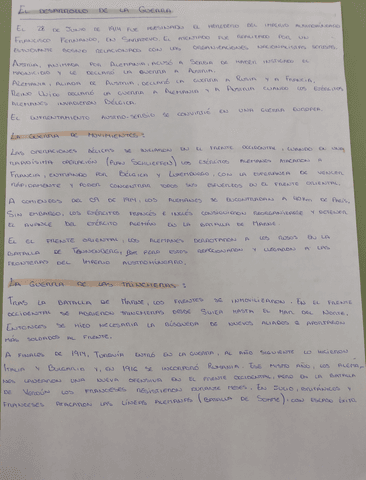 El desarrollo de la Guerra
El 28 de Junio de 1914 fue asesinado el heredero del imperio austrohúngaro
Francisco Fernando, en Sarajevo. El atentado fue realizado por un
estudiante bosnio relacionado con las organizaciones nacionalistas serbias.
Austria, animada por Alemania, acusó a Serbia de haber instigado el
magnicidio y le declaró la guerra a Austria.
Alemania, aliada de Austria, declaró la guerra a Rusia y a Francia.
Reino Unido declaró la guerra a Alemania y a Austria cuando los ejércitos
alemanes invadieron Bélgica.
El enfrentamiento austro-serbio se convirtió en una guerra europea.
La guerra de movimientos:
Las operaciones bélicas se iniciaron en el frente occidental, cuando en una
rapidísima operación (Plan Schlieffen) los ejércitos alemanes atacaron a
Francia, entrando por Bélgica y Luxemburgo, con la esperanza de vencer
rápidamente y poder concentrar todos sus esfuerzos en el frente oriental.
A comienzos del 09 de 1914, los alemanes se encontraban a 40 km de París.
Sin embargo, los ejércitos francés e inglés consiguieron reorganizarse y detener
el avance del ejército alemán en la batalla de Marne.
En el frente oriental, los alemanes derrotaron a los rusos en la
batalla de Tannenberg, pero estos reaccionaron y llegaron a las
fronteras del Imperio austrohúngaro.
La Guerra de las trincheras:
Tras la batalla de Marne, los frentes se inmovilizaron. En el frente
occidental se abrieron trincheras desde Suiza hasta el mar del Norte.
Entonces se hizo necesaria la búsqueda de nuevos aliados e aportaron
más soldados al frente.
A finales de 1914, Turquía entró en la guerra, al año siguiente lo hicieron
Italia y Bulgaria y, en 1916 se incorporó Rumanía. Ese mismo año, los alema-
nes lanzaron una nueva ofensiva en el frente occidental, pero en la batalla
de Verdún los franceses resistieron durante meses. En Julio, británicos y
franceses atacaron las líneas alemanas (batalla de Somme), con escaso éxito.